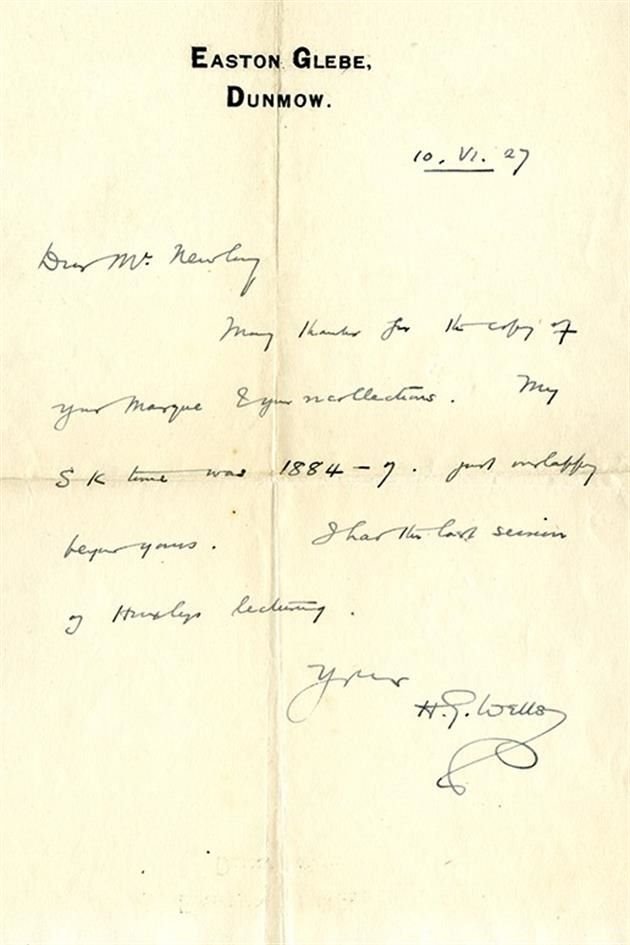 EASTON GLEBE,
DUNMOW.
10. VI. 27
Dear Mr. Newbay
Many thanks for the copy of
your Masque & your recollections. My
S K time was 1884-7. just overlapping
beyond yours. I had the last session
of Huxleys lecturing.
Yours
H. G. Wells